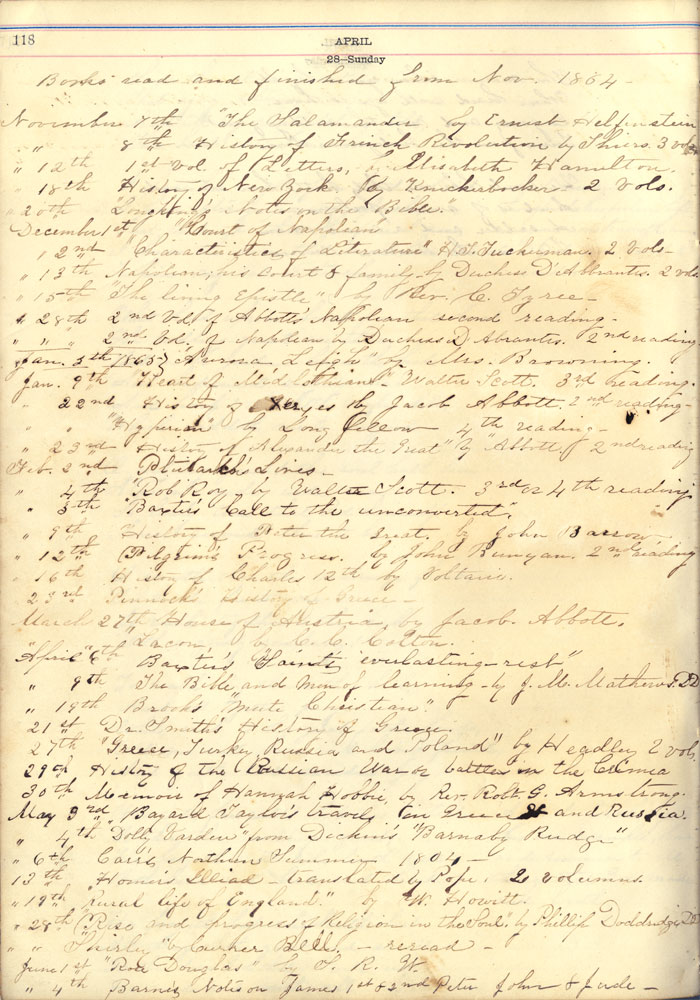 118
APRIL
28—Sunday
Books read and finished from Nov. 1864 —
November 7th "The Salamander by Ernest Helfenstein
" 8th History of French Revolution by Thiers 3 vols
" 12th 1st Vol. of Letters, Elisabeth Hamilton.
" 18th History of New York by Knickerbocker — 2 Vols.
" 20th Notes on the Bible."
December 1st "Court of Napolean"
" 2nd "Characteristics of Literature" H. T. Tuckerman. 2 Vols —
" 13th Napolean, his court & family by Duchess D'Abrantes. 2 vols
" 15th "The living Epistle" by Rev. C. Tyree —
" 28th 2nd Vol. of Abbott's Napolean second reading —
" " " 2nd Vol. of Napolean by Duchess D'Abrantes. 2nd reading
Jan. 5th 1865 Aurora Leigh by Mrs. Browning.
Jan. 9th Heart of Midlothian — Walter Scott. 3rd reading.
22nd History of Xerxes by Jacob Abbott. 2nd reading —
" "Hyperian" by Longfellow 4th reading —
" 23rd History of Alexander the Great" by "Abbott" 2nd reading
Feb. 2nd Plutarch's Lives —
" 4th "Rob Roy" by Walter Scott. 3rd or 4th reading
" 5th Baxter's "Call to the unconverted".
" 9th History of Peter the Great. by John Barrow —
" 12th Pilgrim's Progress. by John Bunyan. 2nd reading
" 16th History of Charles 12th by Voltaire.
23rd Pinnock's History of Greece —
March 27th House of Austria, by Jacob. Abbott.
"Lacon, by C. C. Colton.
"April 6th Baxter's "Saint's everlasting-rest"
" 9th The Bible and Men of learning — by J. M. Mathews. DD
" 19th Brook's "Mute Christian"
21st Dr. Smith's History of Greece
27th "Greece, Turkey, Russia and Poland" by Headley 2 vols.
29th History of the Russian War or battles in the Crimea
30th Memoir of Hannah Hobbie, by Rev. Robt G. Armstrong.
May 3rd Bayard Taylor's travels in Greece and Russia.
" 4th "Dolly Varden" from Dicken's "Barnaby Rudge"
" 6th Carr's Northern Summer 1804 —
13th Homer's Illiad — translated by Pope. 2 Volumns.
" 19th "rural life of England." by W. Howitt.
" 28th "Rise and progress of Religion in the Soul" by Phillip Doddridge DD
" " "Shirley" by Currer Bell — reread —
June 1st "Rose Douglas" by S. R. W.
" 4th Barnes Notes on James 1st & 2nd Peter John & Jude —